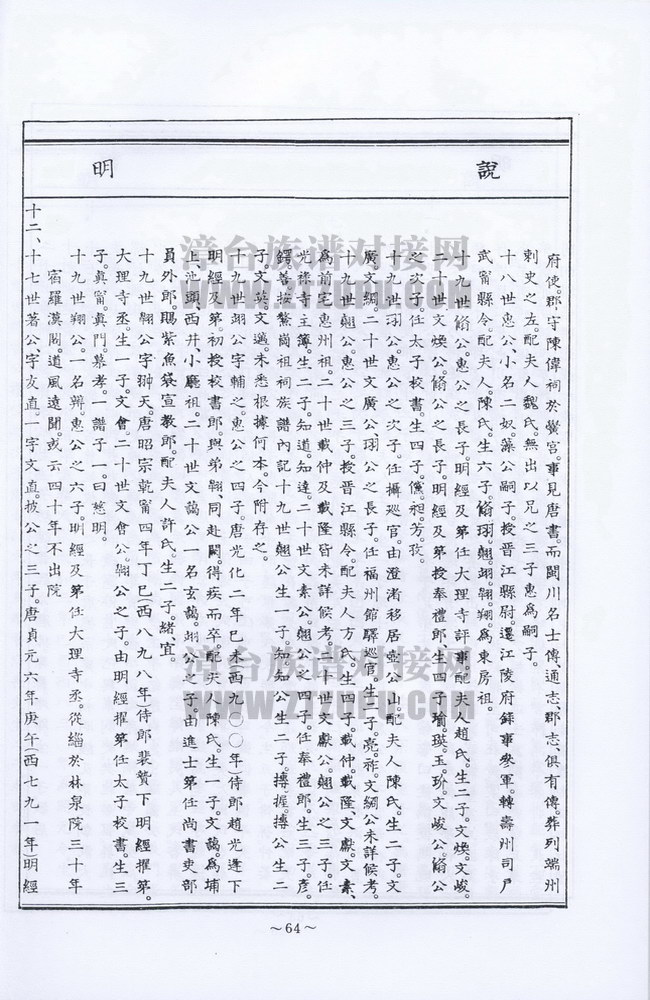 說明
府使郡守陳偉祠於黌宮。事見唐書。而閩川名士傳通志、郡志、俱有傳。葬列端州
刺史之左。配夫人魏氏。無出以兄之三子惠為嗣子。
十八世惠公、小名二奴。藻公嗣子。授晉江縣尉。遷江陵府錄事參軍。轉壽州司戶
武甯縣令。配夫人。陳氏。生六子。翛、珝、翹、翊、翱、翔。為東房祖。
十九世翛公。惠公之長子。明經及第任大理寺評事。配夫人趙氏。生二子。文煥。文峻。
二十世文煥公。翛公之長子。明經及第授奉禮郎。生四子。瑜。瑛。玉。玠。文峻公。翛公
之次子。任太子校書。生四子。儻。昶。芳。孜。
十九世珝公。惠公之次子。任攝巡官。由澄渚移居壺公山。配夫人陳氏。生二子。文
廣文綢。二十世文廣公。珝公之長子。任福州館驛巡官。生二子。亮。祚。文綢公未詳候考。
十九世翹公。惠公之三子。授晉江縣令。配夫人方氏。生四子。載仲。載隆、文獻。文素、
為前宅惠州祖。二十世載仲及載隆皆未詳候考。二十世文獻公。翹公之三子。任
光祿寺主簿。生二子。知道。知達。二十世文素公。翹公之四子。任奉禮郎。生三子。彥。
鍔。善。按鰲崗祖祠族譜內記十九世翹公生一子。知。知公生二子。摶。握。摶公生二
子。文英。文邁。未悉根據何本。今附存之。
十九世翊公字輔之。惠公之四子。唐光化二年己未(西九〇〇年)侍郎趙光逢下
明經及第。初授校書郎。與弟翱、同赴闕。得疾而卒。配夫人陳氏。生一子。文藹。為埔
上池頭、西井小廳祖。二十世文藹公一名玄藹。翊公之子。由進士第任尚書吏部
員外郎。賜紫魚袋宣教郎。配夫人許氏。生二子。緒。宜。
十九世翱公字翀天。唐昭宗乾甯四年丁巳(西八九八年)侍郎裴贄下明經擢第。
大理寺丞。生一子。文會。二十世文會公。翱公之子。由明經擢第任太子校書。生三
子。真甯。真門。慕孝。一譜子一。曰慈明。
十九世翔公。一名辮。惠公之六子。明經及第任大理寺丞。從緇於林泉院三十年
宿羅漢閣。道風遠聞。或云四十年不出院
十二、十七世著公字友直。一字文直。披公之三子。唐貞元六年庚午(西七九一年)明經
~64~
漳台族谱对接网
WWW.ZTZUPU.COM
漳台族谱对接网
WWW.ZTZUPU.COM